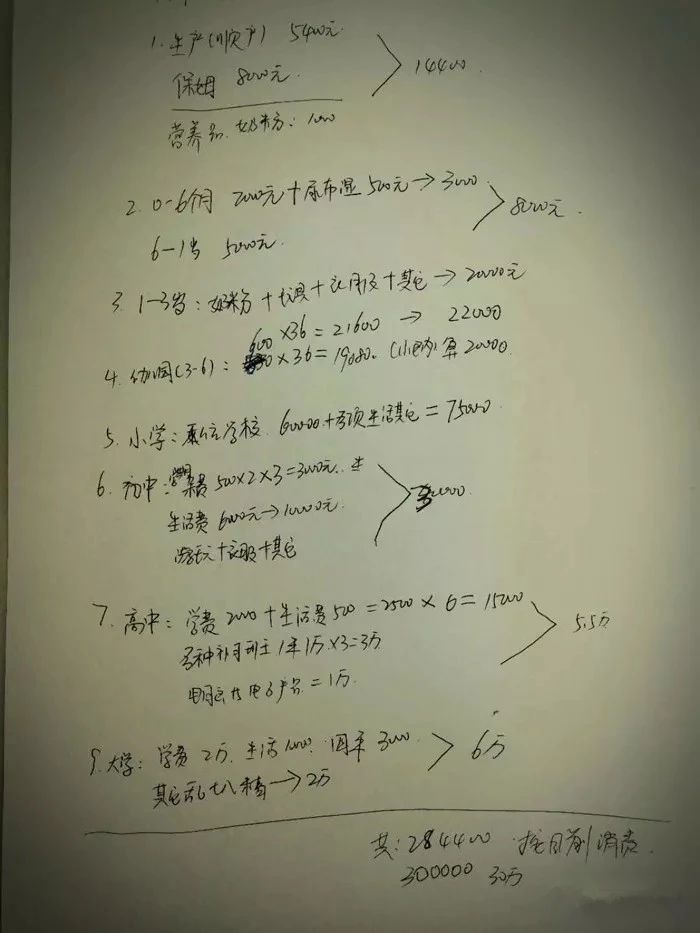 1. 生产(顺产) 5400元
保姆 8000元. 14400.
营养品.奶粉: 1000
2. 0-6个月 2000元+尿布湿500元→3000.
6-1岁 5000元. 8000元.
3. 1-3岁:奶粉+玩具+衣服+其它→20000元
600×36=21600 → 22000
4. 幼园(3-6): ×36=19080. 算20000.
5. 小学: 学校. 60000.+ 生活其它=75000.
6. 初中: 500×2×3=3000元..
生活费 6000元→10000元. 0000.
+衣服+其它
7. 高中: 学费2000+生活费500=2500×6=15000
各种补习班 1年1万×3=3万 5.5万
电子产品=1万.
9. 大学: 学费2万.生活1000. 3000. 6万
其它乱七八糟→2万
共:284400 按目前消费.
300000 30万